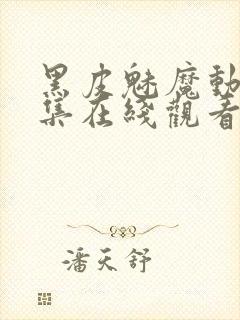 黑皮魅魔動
集在綫觀看
潘天舒